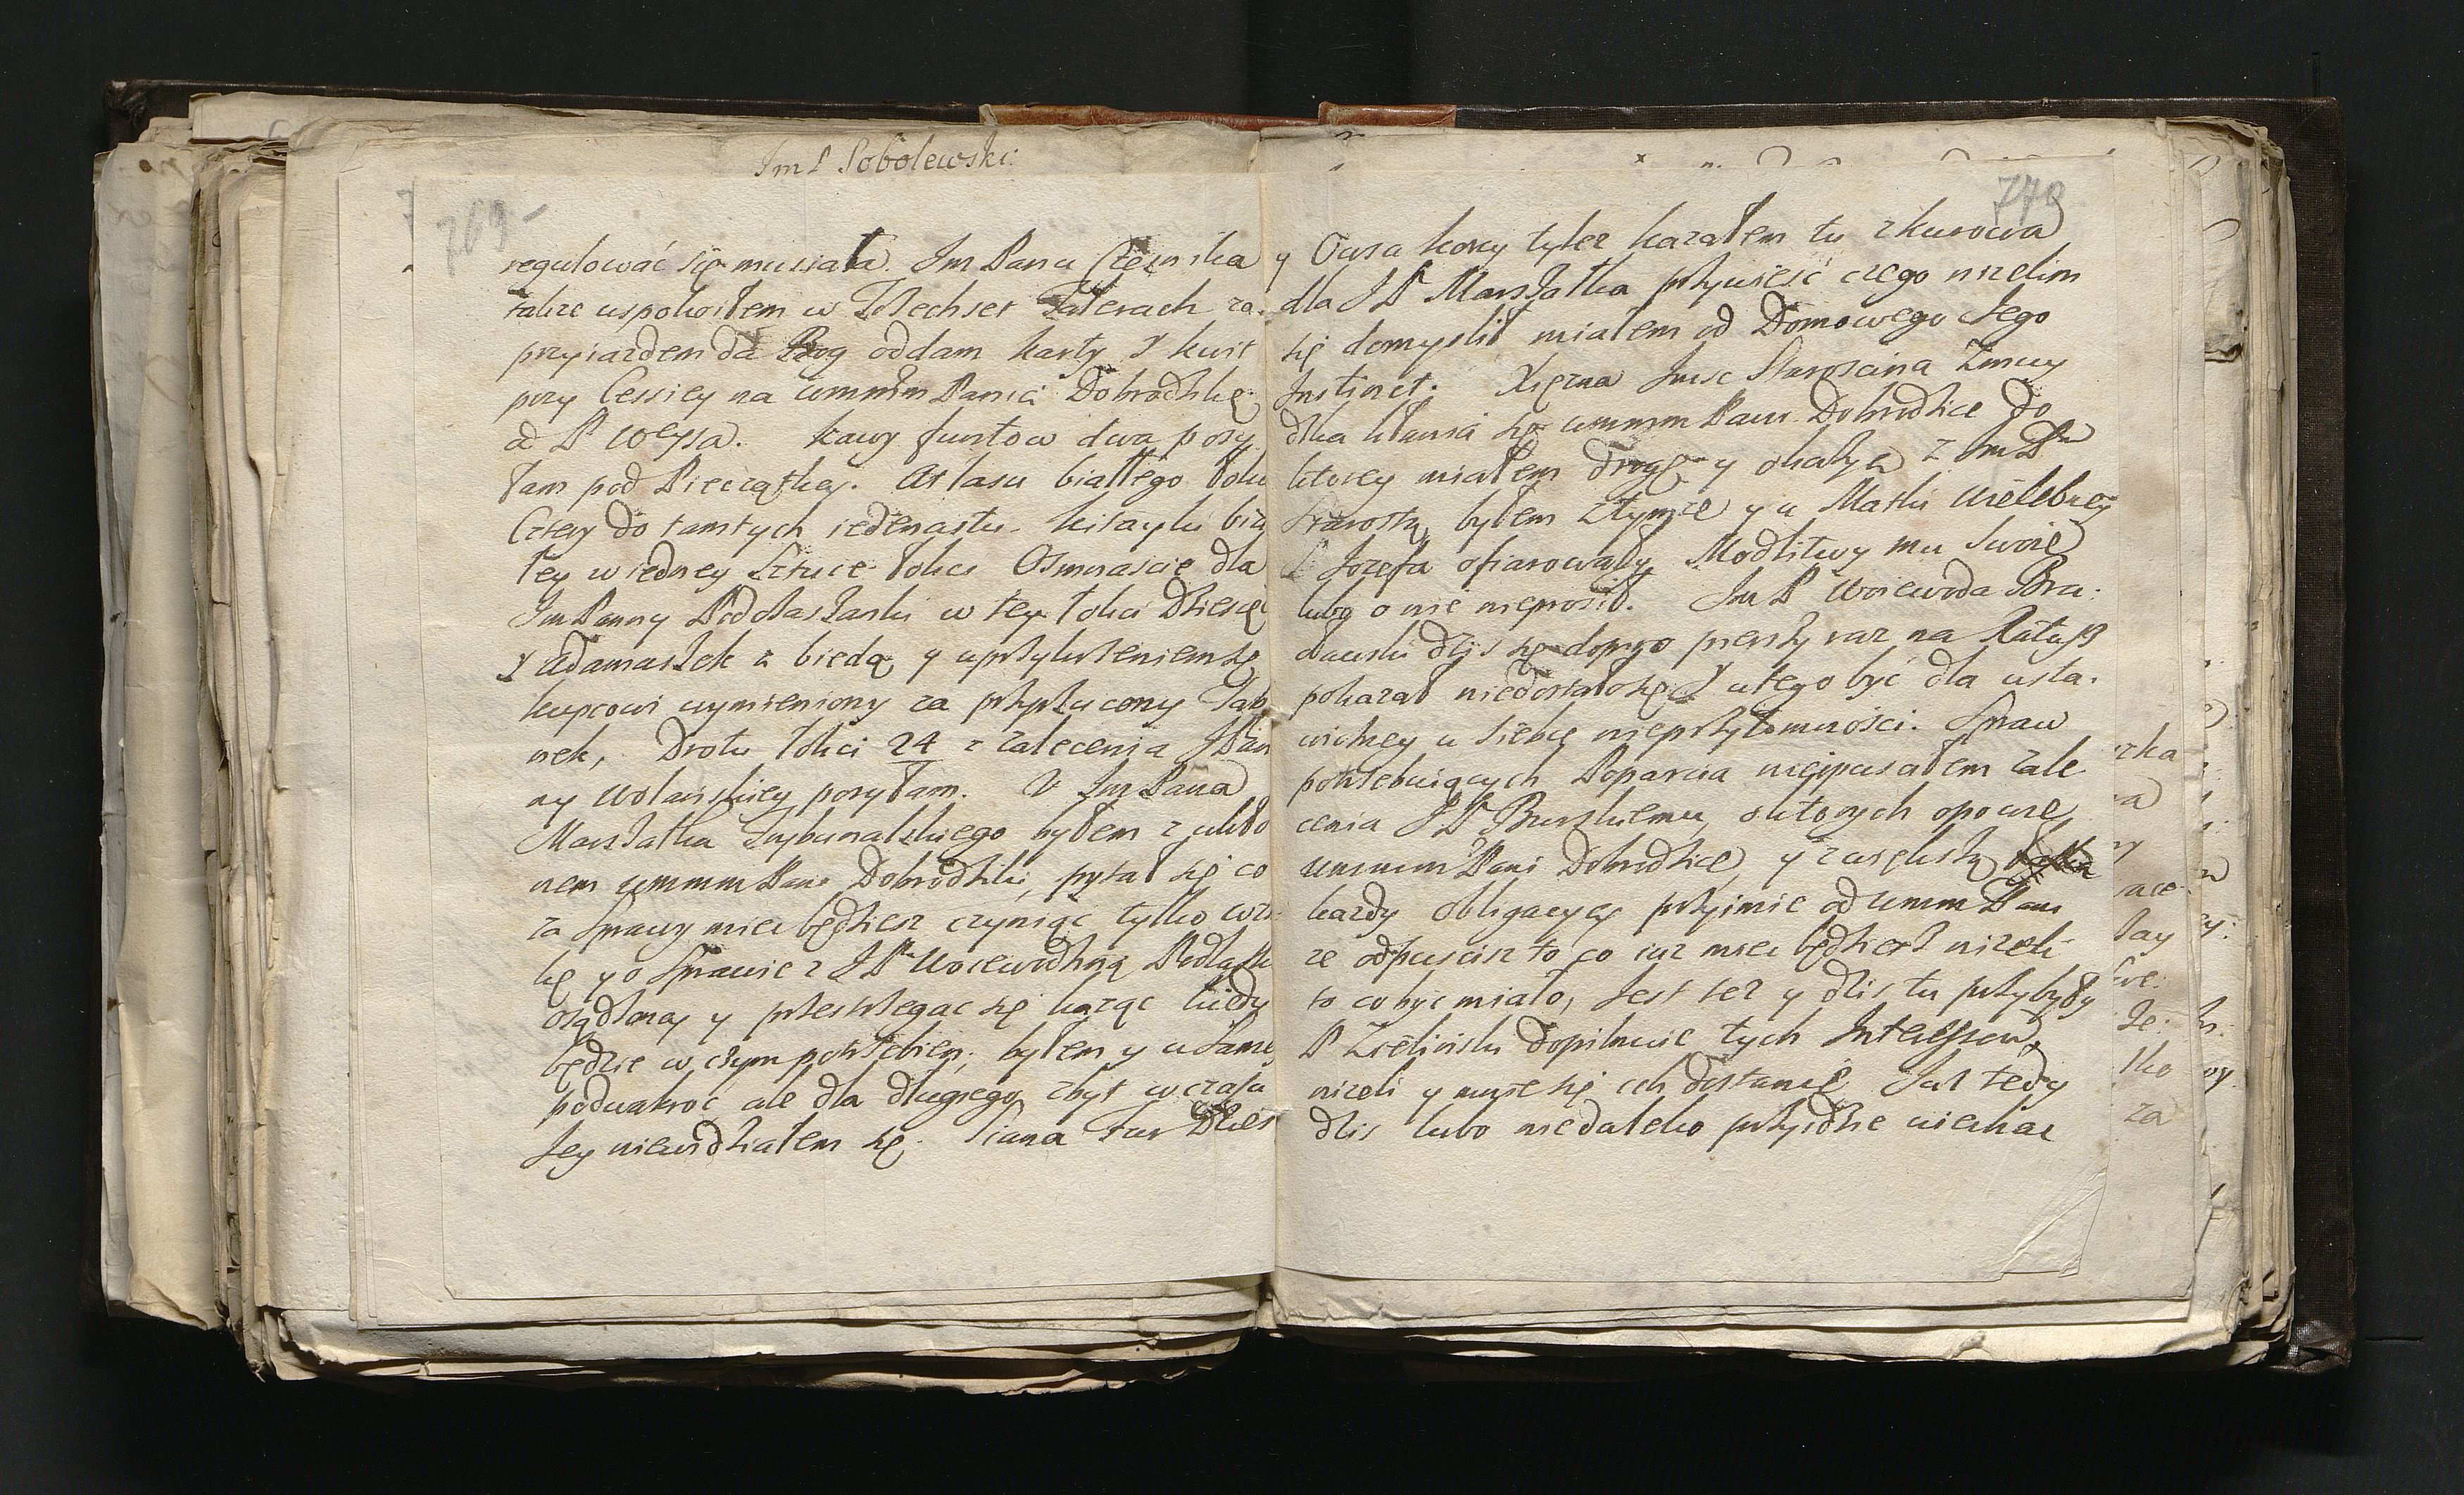 Im P Sobolewski
769
regulować się musiała. Im Pana Cześnika
także uspokoiłem w Trzechset Talerach za
przyiazdem da Bog oddam karty y kwit
przy Cessiey na wmmm Panią Dobrodzikę
od P Weyssa. kawy funtow dwa posy
łam pod Pieczątką. Atłasu białłego łokci
Cztery do tamtych iedenastu. kitayki bia
łey w iedney Sztuce łokci Osmnascie dla
Im Panny Podolaszanki w tey łokci Dziesię
y Adamaszek z biedą y uprzykrzeniem się
kupcowi wymieniony za przyrzucony Tab
nek, Drotu łokci 24 z zalecenia JPan
ny Wolańskiey posyłam. U Im Pana
Marszałka Trybunalskiego byłem z ukło
nem wmmm Pani Dobrodziki, pytał się co
za Sprawy mieć będziesz czyniąc tylko wzm
kę y o Sprawie z JP Woiewodziną Podlaską
osądzoną y przestrzegac się każąc kiedy
będzie w czym potrzebien; byłem y u Samey
podwakroc ale dla długiego zbyt wczasu
Jey niewidziałem się. Siana Fur Dzies
770
y Owsa korcy tyleż kazałem tu z kurowa
dla JP Marszałka przywieść czego niżelim
się domyslił miałem od Domowego Jego
Instinct. Xiężna Jmsc Starościna Zmuy
dzka kłania się wmmm Pani Dobrodzice do
ktorey miałem drogę y okazyą z Im Pm
Starostą, byłem ztymże y u Matki Wielebney
S Jozefa ofiarowały Modlitwy mu Swoie
lubo o nie nieprosił. Im P Woiewoda Bra:
cławski dziś się dopiro pierszy raz na Ratusz
pokazał niedostało się y utego być dla usta.
wiczney u siebie nieprzytomności. Spraw
potrzebuiących Poparcia nieipusciłem zale
cenia JP Burskiemu, o ktorych opowie
wmmm Pani Dobrodzice, y zwiększą
każdy obligacyą przyimie od wmm Pani
że odpuscisz to co iuż mieć będziesz niżeli
to co być miało, Jest też y dzis tu przybyły
P Zielinski dopilnuie tych Interessow,
niżeli y muże się ich dostanie Już tedy
dzis lubo niedaleko przyidzie wiechac